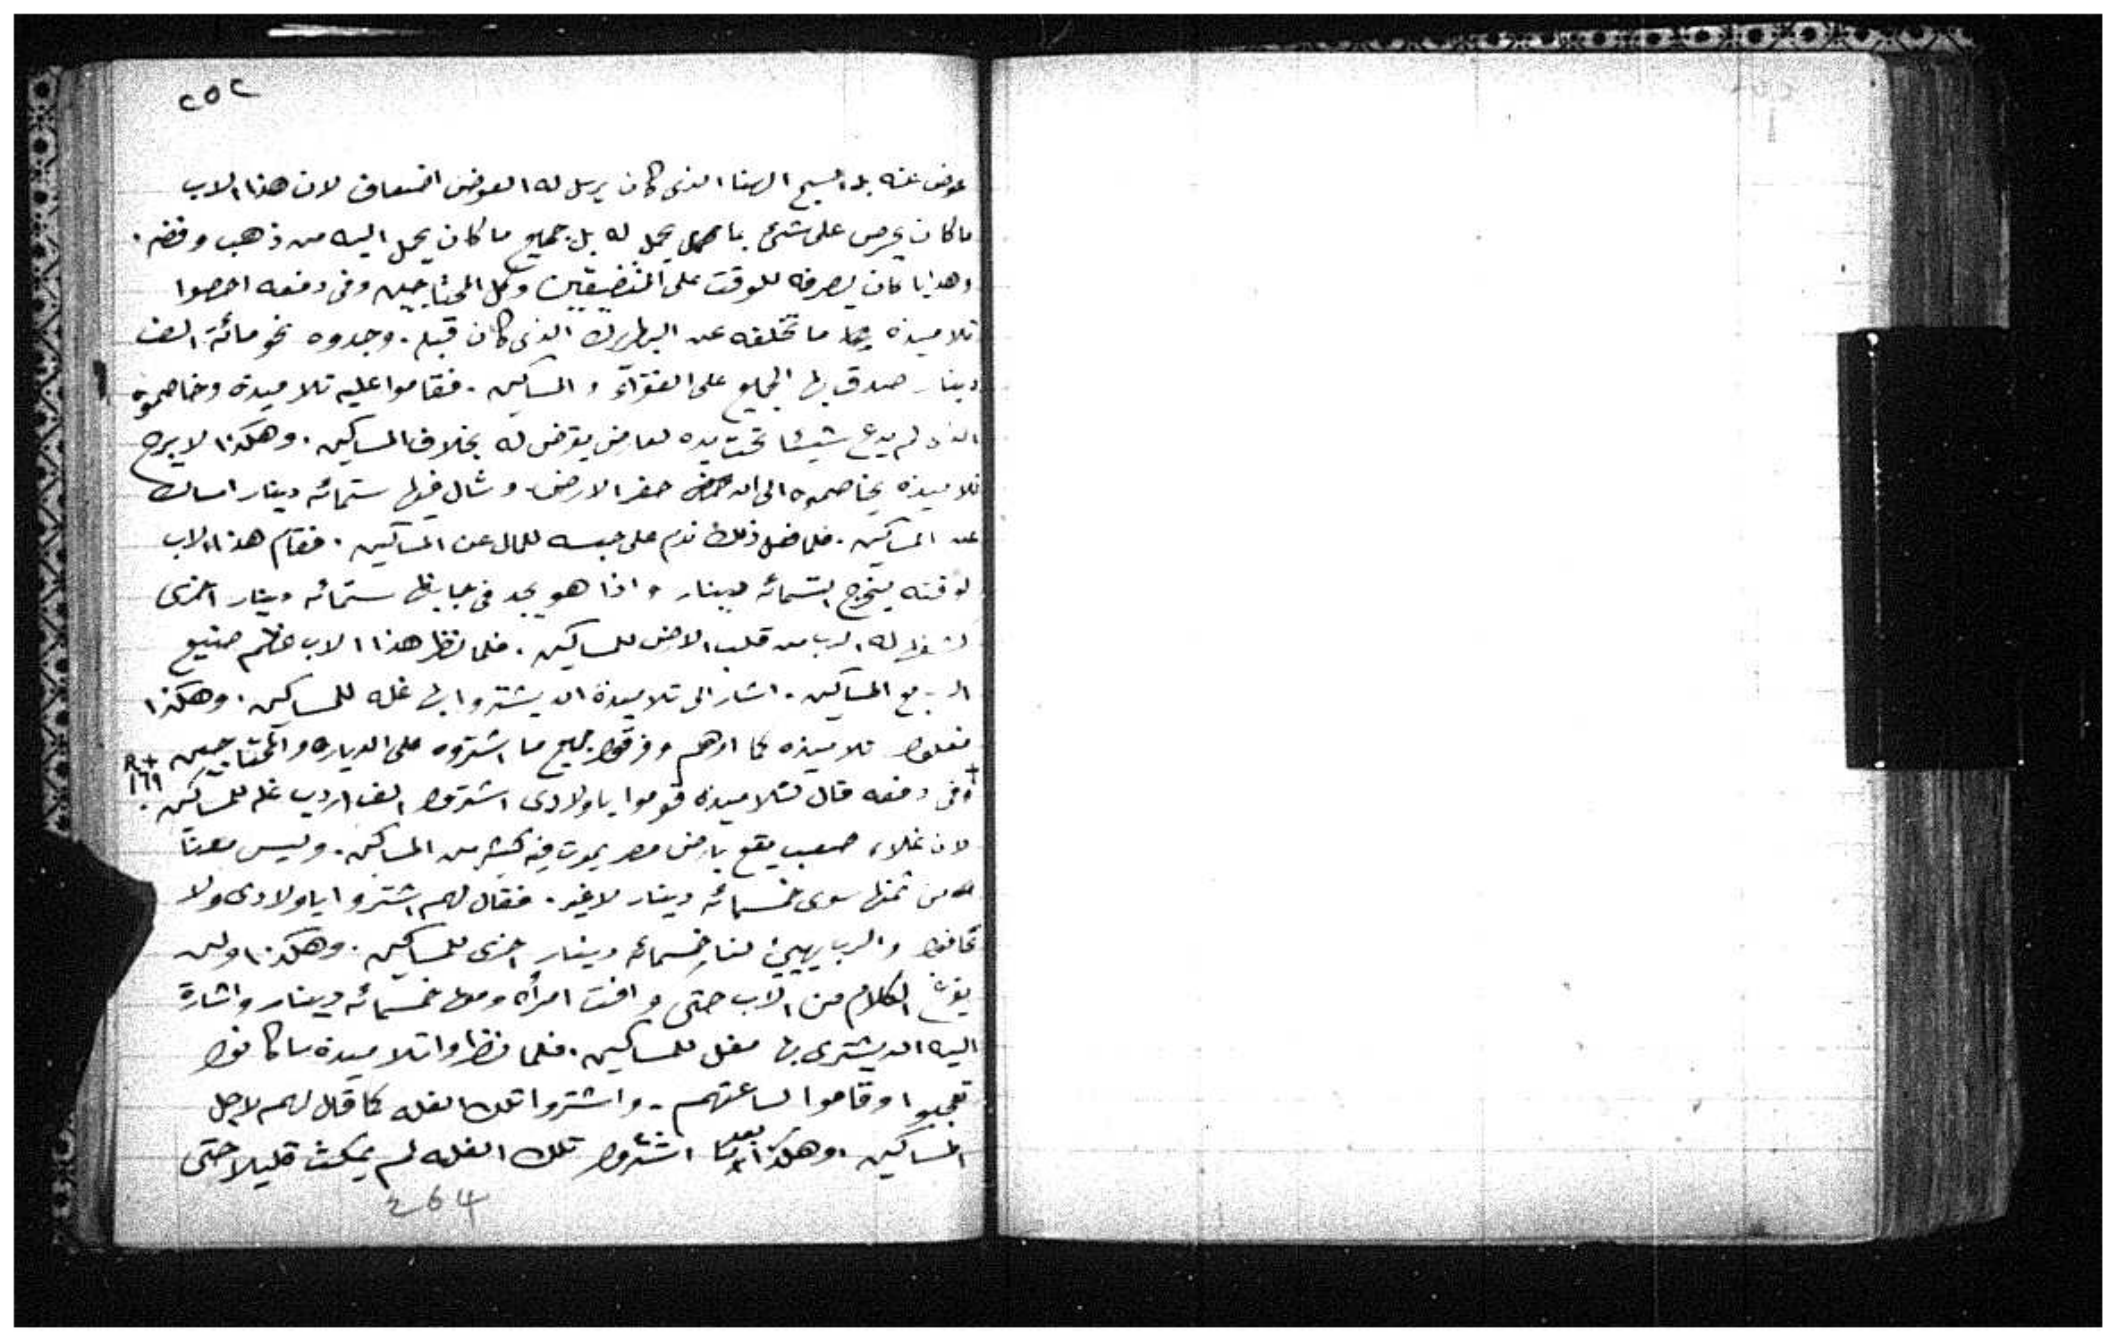 ٢٥٢
عوض عنه بل المسيح الهنا الذى كان يرسل له العوض اضعاف لان هذا الاب
ما كان يحرص على شئ مما يحمل له بل جميع ما كان يحمل اليه من ذهب وفضه
وهدايا كان يصرفه للوقت على المتضيقين وكل المحتاجين وفى دفعه احصوا
تلاميذه ما تخلفه عن البطرك الذى كان قبله . وجدوه نحو مائة الف
دينار صدق بها الجميع على الفقراء والمساكين . فقاموا عليه تلاميذه وخاصموه
الذى لم يدع شيئا تحت يده لعارض يعرض له بخلاف المساكين . وهكذا لا يبرح
تلاميذه يخاصموه الى ان حفر الارض وشال فيها ستمائه دينار امساك
عن المساكين . فلما فعل ذلك ندم على حبسه للمال عن المساكين . فقام هذا الاب
لوقته يخرج الستمائه دينار واذا هو يجد فى ستمائه دينار اخرى
له الرب من قلب الارض للمساكين . فلما نظر هذا الاب عظم صنيع
الرب مع المساكين . اشار الى تلاميذه ان يشتروا بها غله للمساكين . وهكذا
فعلوا تلاميذه كما امرهم وفرقوا جميع ما اشتروه على الديارة والمحتاجين R +
+ وفى دفعه قال لتلاميذه قوموا يا ولادى اشتروا الف اردب غله للمساكين . ١٦٩
لان غلاء صعب يقع بارض مصر يموت فيه كثير من المساكين . وليس معنا
من ثمنها سوى خمسمائه دينار لا غير . فقال لهم اشتروا يا ولادى ولا
تخافوا والرب يهيئ لنا خمسمائه دينار اخرى للمساكين . وهكذا ولم
يفرغ الكلام من الاب حتى وافت امرأة ومعها خمسمائه دينار واشارة
اليه ان يشترى بها مغل للمساكين . فلما نظروا تلاميذه ما كانوا
تعجبوا وقاموا لساعتهم . واشتروا تلك الغله كما قال لهم لاجل
المساكين . وهكذا بعد ما اشتروا تلك الغله لم يمكث قليلا حتى
264